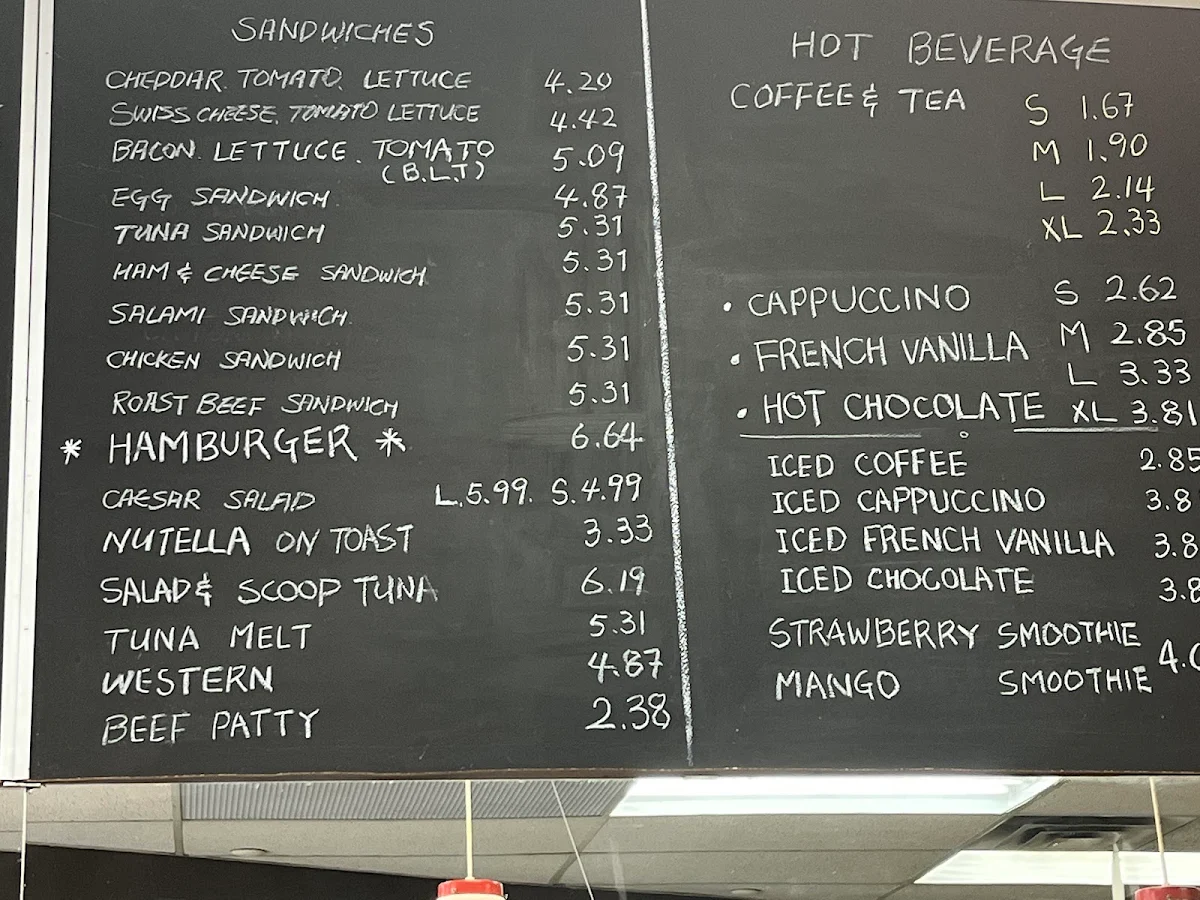 SANDWICHES
CHEDDAR. TOMATO. LETTUCE 4.29
SWISS CHEESE. TOMATO LETTUCE 4.42
BACON. LETTUCE. TOMATO 5.09
(B.L.T)
EGG SANDWICH 4.87
TUNA SANDWICH 5.31
HAM & CHEESE SANDWICH 5.31
SALAMI SANDWICH 5.31
CHICKEN SANDWICH 5.31
ROAST BEEF SANDWICH 5.31
* HAMBURGER * 6.64
CAESAR SALAD L.5.99. S.4.99
NUTELLA ON TOAST 3.33
SALAD & SCOOP TUNA 6.19
TUNA MELT 5.31
WESTERN 4.87
BEEF PATTY 2.38
HOT BEVERAGE
COFFEE & TEA S 1.67
M 1.90
L 2.14
XL 2.33
• CAPPUCCINO S 2.62
• FRENCH VANILLA M 2.85
L 3.33
• HOT CHOCOLATE XL 3.81
ICED COFFEE 2.85
ICED CAPPUCCINO 3.8
ICED FRENCH VANILLA 3.8
ICED CHOCOLATE 3.8
STRAWBERRY SMOOTHIE
MANGO SMOOTHIE 4.